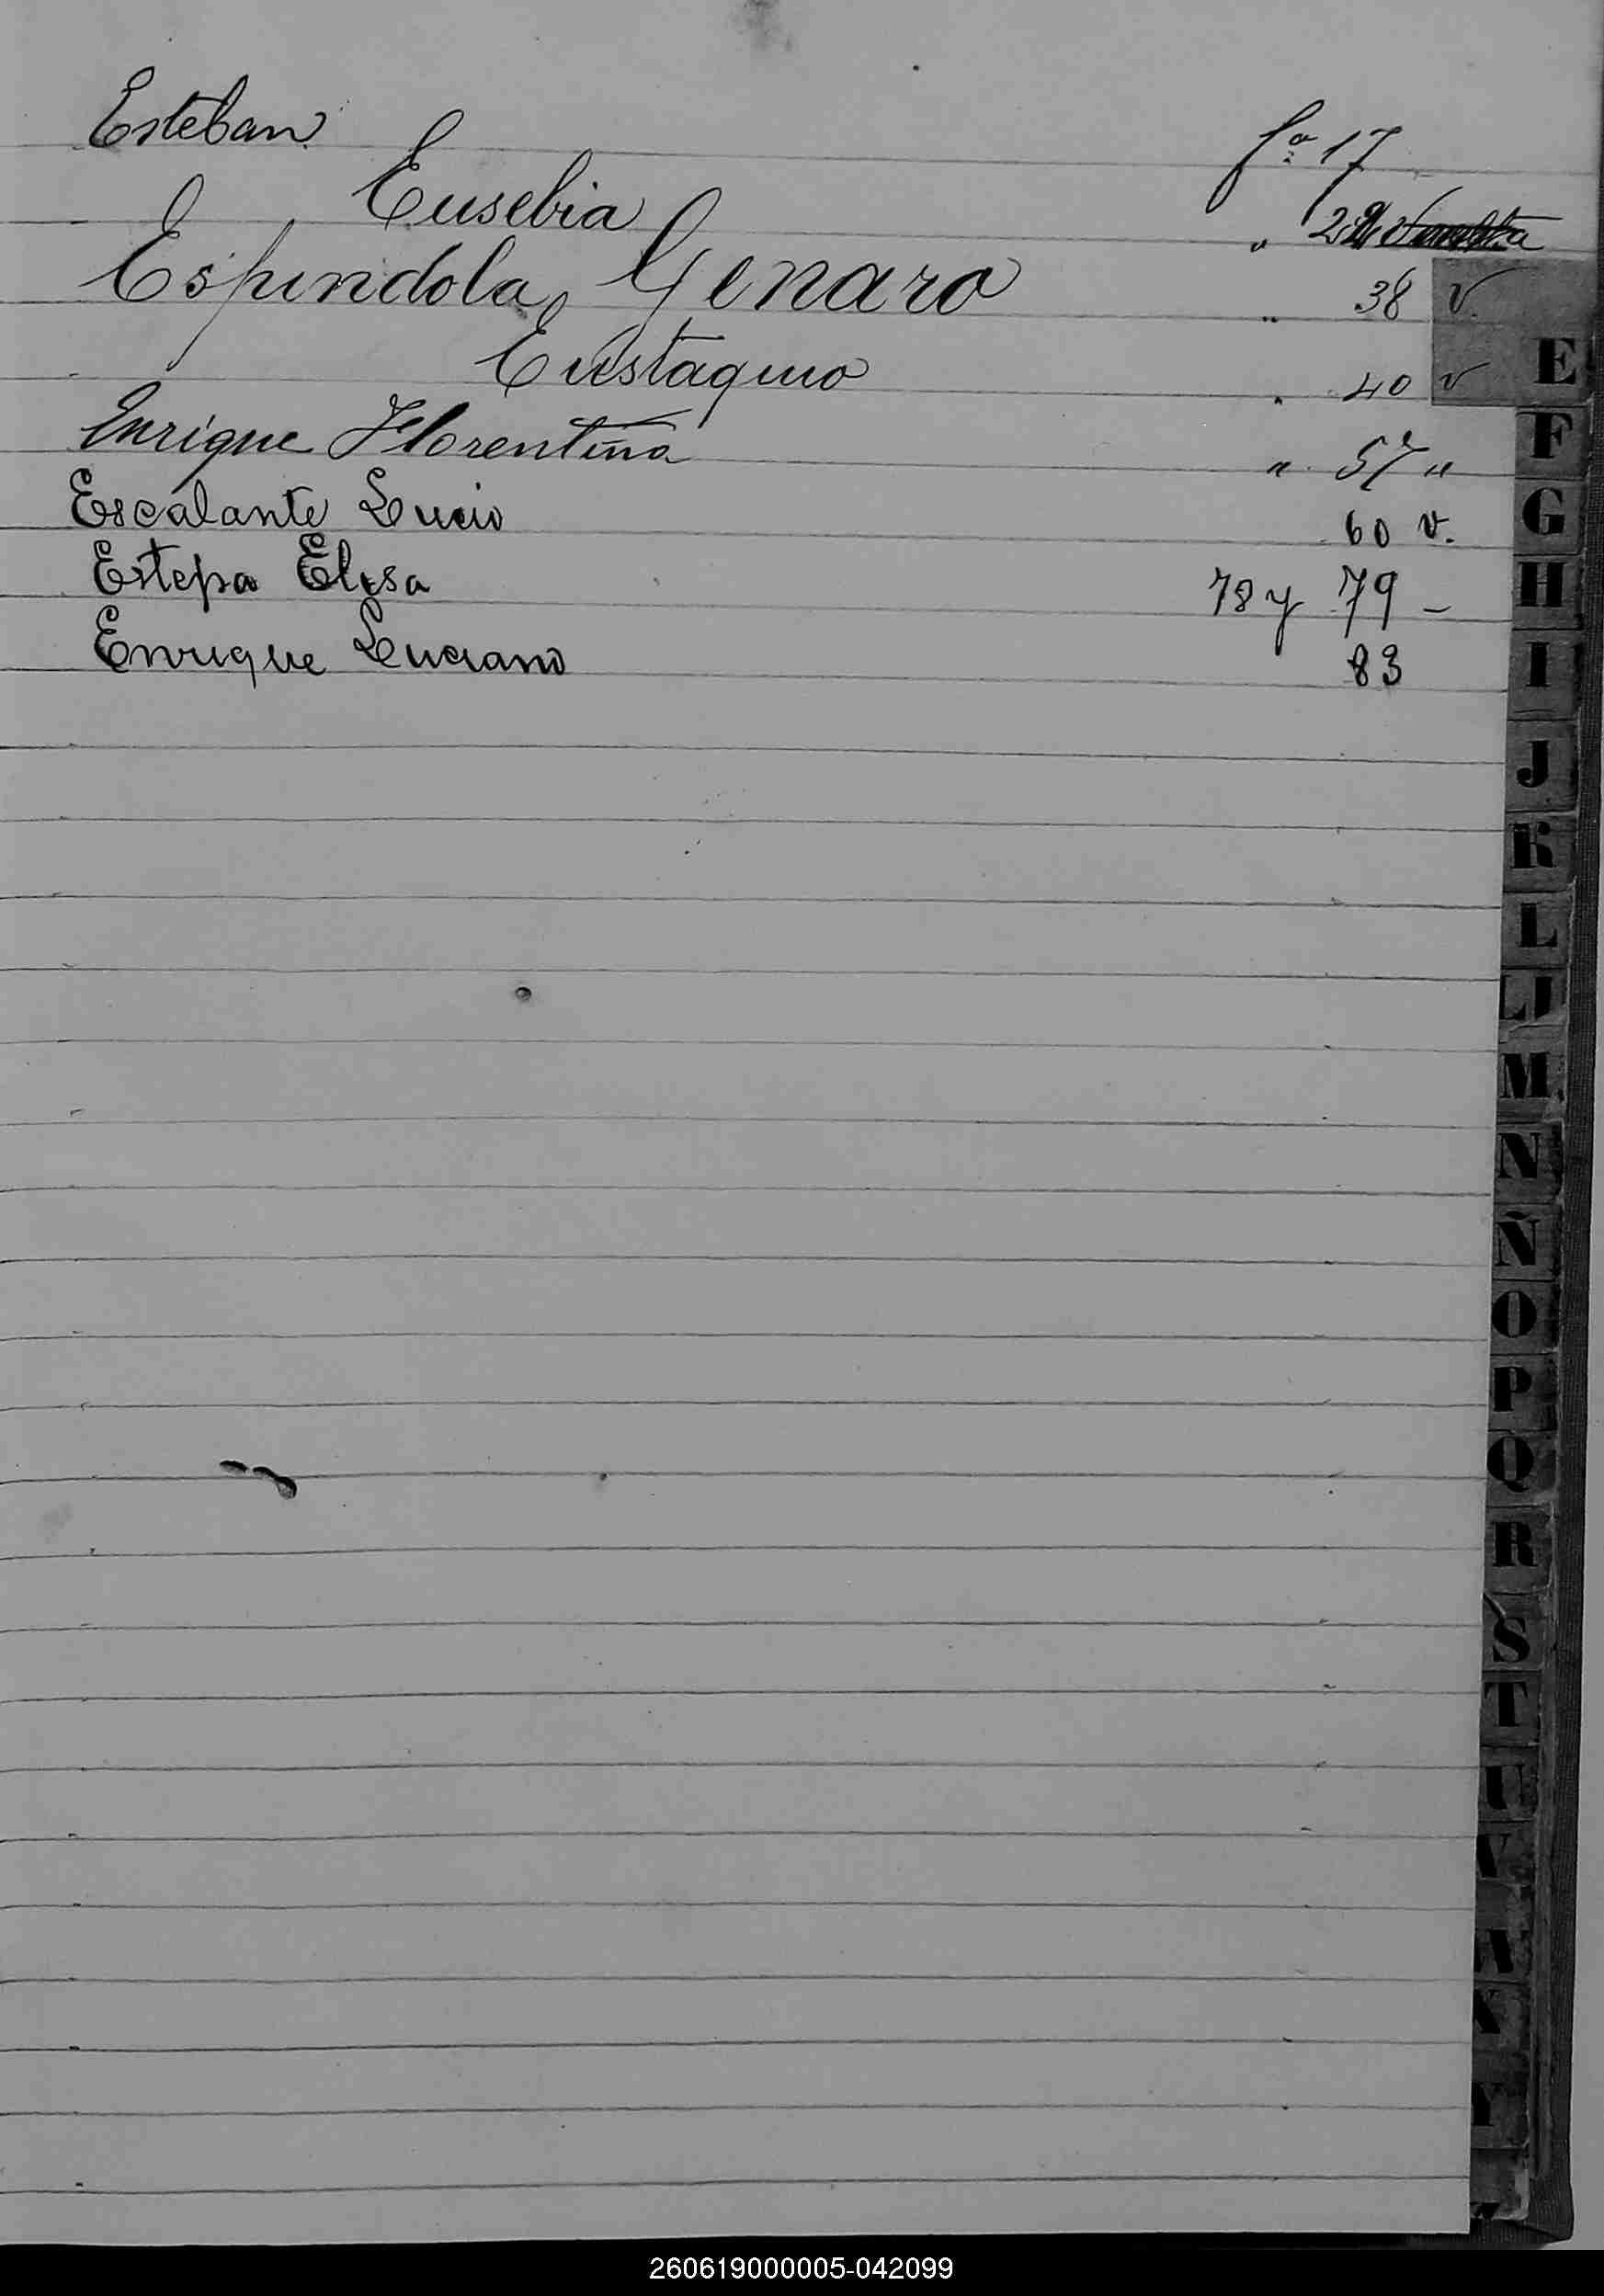 Esteban fo 17
Eusebia " 22
Espindola, Genaro " 38 v.
Eustaquio " 40 v
Enrique Florentina " 57 "
Escalante Lucio 60 v.
Estepa Elisa 78 y 79 –
Enrique Luciano 83
E
F
G
H
I
J
K
L
LL
M
N
Ñ
O
P
Q
R
S
T
U
V
X
Y
260619000005-042099